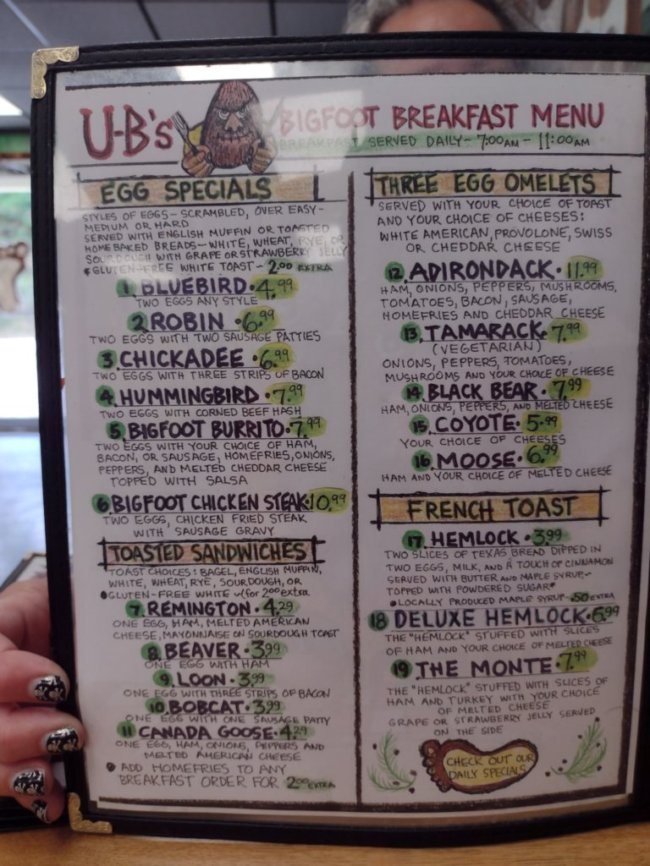 U-B's
BIGFOOT BREAKFAST MENU
BREAKFAST SERVED DAILY - 7:00AM - 11:00AM
EGG SPECIALS
STYLES OF EGGS - SCRAMBLED, OVER EASY -
MEDIUM OR HARD
SERVED WITH ENGLISH MUFFIN OR TOASTED
HOME BAKED BREADS - WHITE, WHEAT, RYE, OR
SOURDOUGH WITH GRAPE OR STRAWBERRY JELLY
• GLUTEN-FREE WHITE TOAST - 2.00 EXTRA
1. BLUEBIRD • 4.99
TWO EGGS ANY STYLE
2 ROBIN • 6.99
TWO EGGS WITH TWO SAUSAGE PATTIES
3. CHICKADEE • 6.99
TWO EGGS WITH THREE STRIPS OF BACON
4. HUMMINGBIRD • 7.99
TWO EGGS WITH CORNED BEEF HASH
5. BIGFOOT BURRITO • 7.99
TWO EGGS WITH YOUR CHOICE OF HAM,
BACON, OR SAUSAGE, HOMEFRIES, ONIONS,
PEPPERS, AND MELTED CHEDDAR CHEESE
TOPPED WITH SALSA
6 BIGFOOT CHICKEN STEAK 10.99
TWO EGGS, CHICKEN FRIED STEAK
WITH SAUSAGE GRAVY
TOASTED SANDWICHES
TOAST CHOICES: BAGEL, ENGLISH MUFFIN,
WHITE, WHEAT, RYE, SOURDOUGH, OR
• GLUTEN-FREE WHITE - (for 2.00 extra
7. REMINGTON • 4.29
ONE EGG, HAM, MELTED AMERICAN
CHEESE, MAYONNAISE ON SOURDOUGH TOAST
8. BEAVER • 3.99
ONE EGG WITH HAM
9. LOON • 3.99
ONE EGG WITH THREE STRIPS OF BACON
10. BOBCAT • 3.99
ONE EGG WITH ONE SAUSAGE PATTY
11 CANADA GOOSE • 4.29
ONE EGG, HAM, ONIONS, PEPPERS AND
MELTED AMERICAN CHEESE
• ADD HOMEFRIES TO ANY
BREAKFAST ORDER FOR 2.00 EXTRA
THREE EGG OMELETS
SERVED WITH YOUR CHOICE OF TOAST
AND YOUR CHOICE OF CHEESES:
WHITE AMERICAN, PROVOLONE, SWISS
OR CHEDDAR CHEESE
12. ADIRONDACK • 11.99
HAM, ONIONS, PEPPERS, MUSHROOMS,
TOMATOES, BACON, SAUSAGE,
HOMEFRIES AND CHEDDAR CHEESE
13. TAMARACK • 7.99
(VEGETARIAN)
ONIONS, PEPPERS, TOMATOES,
MUSHROOMS AND YOUR CHOICE OF CHEESE
14. BLACK BEAR • 7.99
HAM, ONIONS, PEPPERS, AND MELTED CHEESE
15. COYOTE • 5.99
YOUR CHOICE OF CHEESES
16. MOOSE • 6.99
HAM AND YOUR CHOICE OF MELTED CHEESE
FRENCH TOAST
17. HEMLOCK • 3.99
TWO SLICES OF TEXAS BREAD DIPPED IN
TWO EGGS, MILK, AND A TOUCH OF CINNAMON
SERVED WITH BUTTER AND MAPLE SYRUP -
TOPPED WITH POWDERED SUGAR*
• LOCALLY PRODUCED MAPLE SYRUP .50 EXTRA
18 DELUXE HEMLOCK • 6.99
THE "HEMLOCK" STUFFED WITH SLICES
OF HAM AND YOUR CHOICE OF MELTED CHEESE
19 THE MONTE • 7.99
THE "HEMLOCK" STUFFED WITH SLICES OF
HAM AND TURKEY WITH YOUR CHOICE
OF MELTED CHEESE
GRAPE OR STRAWBERRY JELLY SERVED
ON THE SIDE
CHECK OUT OUR
DAILY SPECIALS